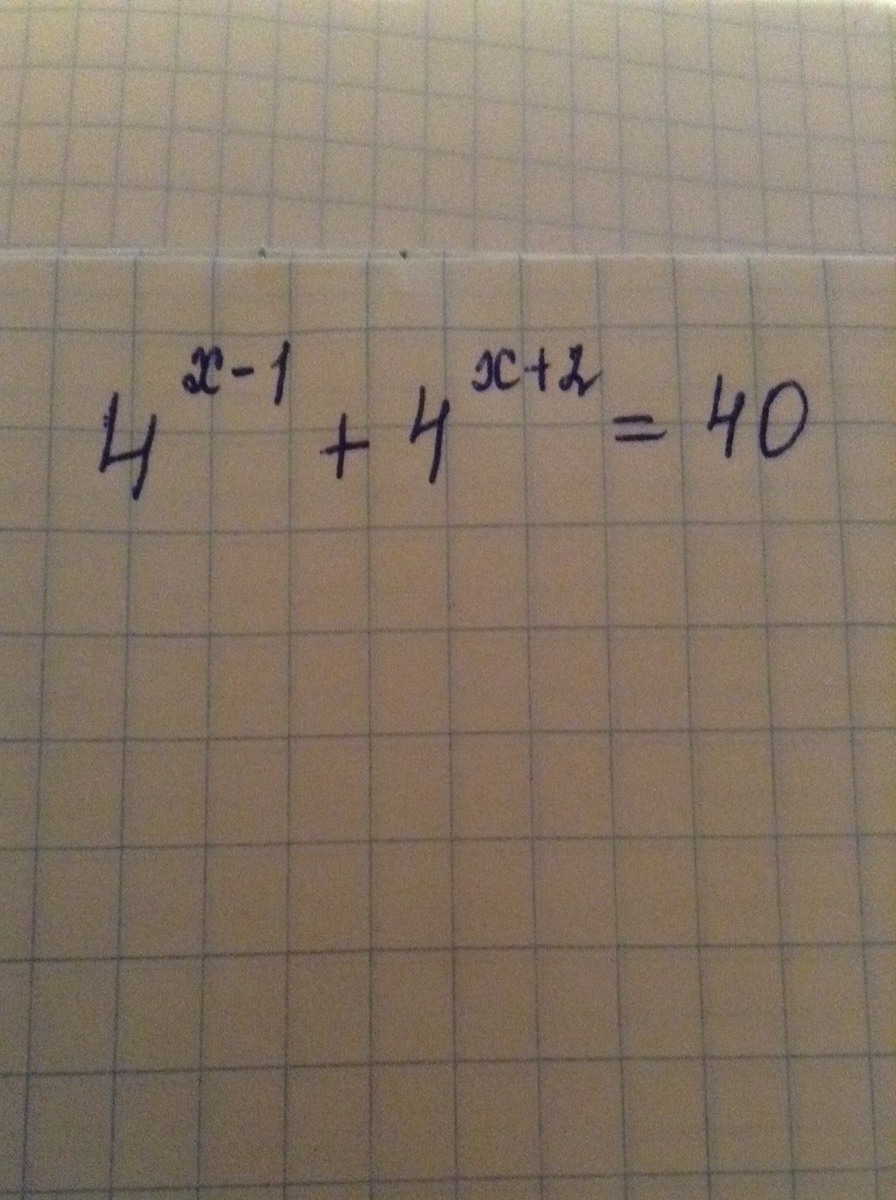 4^{x-1} + 4^{x+2} = 40